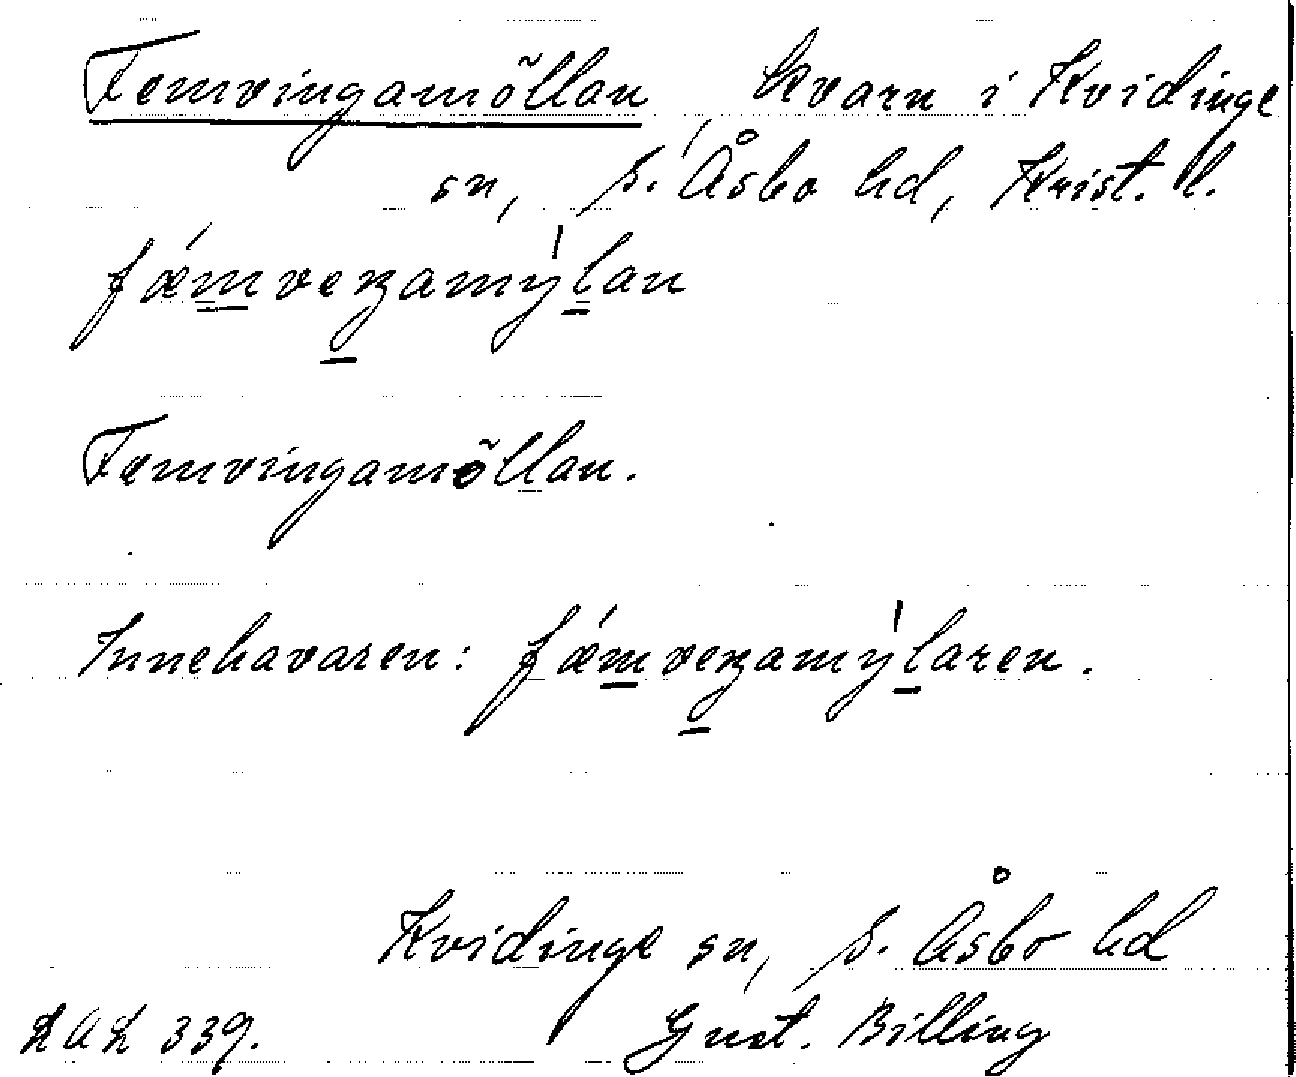 Femvingamöllan, kvarn i Kvidinge
sn, S. Åsbo hd, Krist. l.
fǽmveŋamỳlan
Femvingamöllan.
Innehavaren: fǽmveŋamỳlaren.
Kvidinge sn, S. Åsbo hd
LAL 339. Gust. Billing